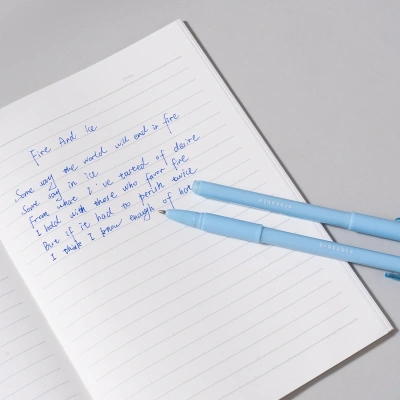 Fire And Ice
Some way the world will end in fire
Some say in ice
From what I've tweed of desire
I hold with those who favor fire
But if it had to perish twice
I think I know enough of hate